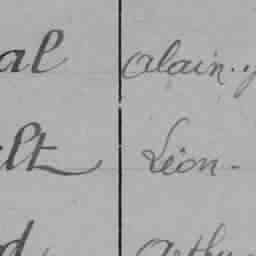 al Alain.
ilt Léon.
d Arthu